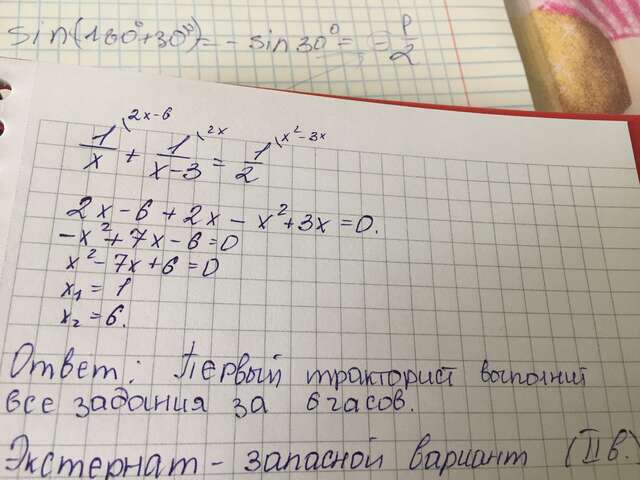 sin(180°+30°)=-sin30°=-1/2
1/x \2x-6 + 1/x-3 \2x = 1/2 \x²-3x
2x-6+2x-x²+3x=0.
-x²+7x-6=0
x²-7x+6=0
x₁=1
x₂=6.
Ответ: Первый тракторист выполнит
все задания за 6 часов.
Экстернат - запасной вариант (II в.)